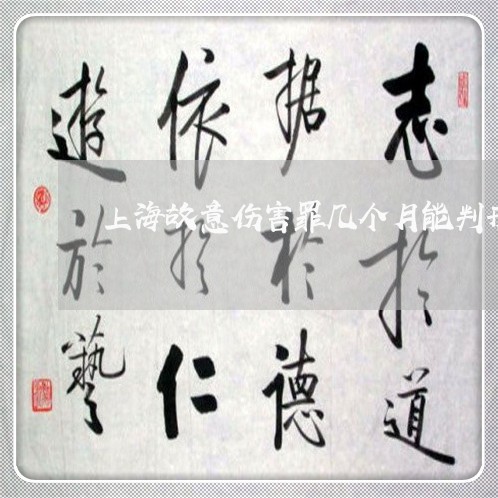 志於道
据於德
依於仁
遊於藝
上海故意伤害罪几个月能判